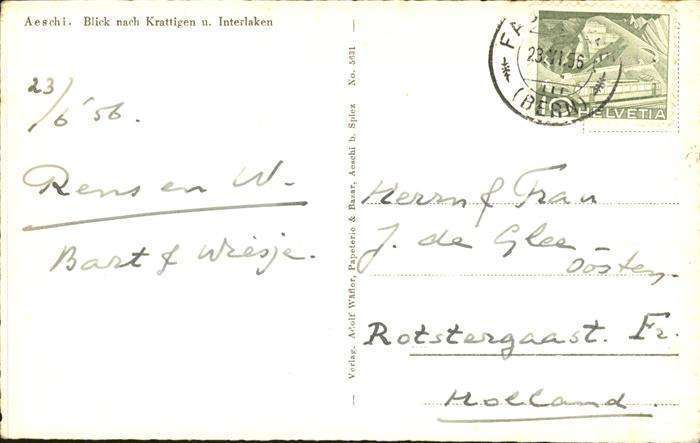 Aeschi. Blick nach Krattigen u. Interlaken
23/6 '56.
Rens en W.
Bart & Wiesje.
Verlag. Adolf Wäfler, Papeterie & Bazar, Aeschi b. Spiez No. 5631
23.VI.56
(BERN)
HELVETIA
Herrn & Frau
J. de Glee –
Oosten.
Rotstergaast. Fr.
Holland.